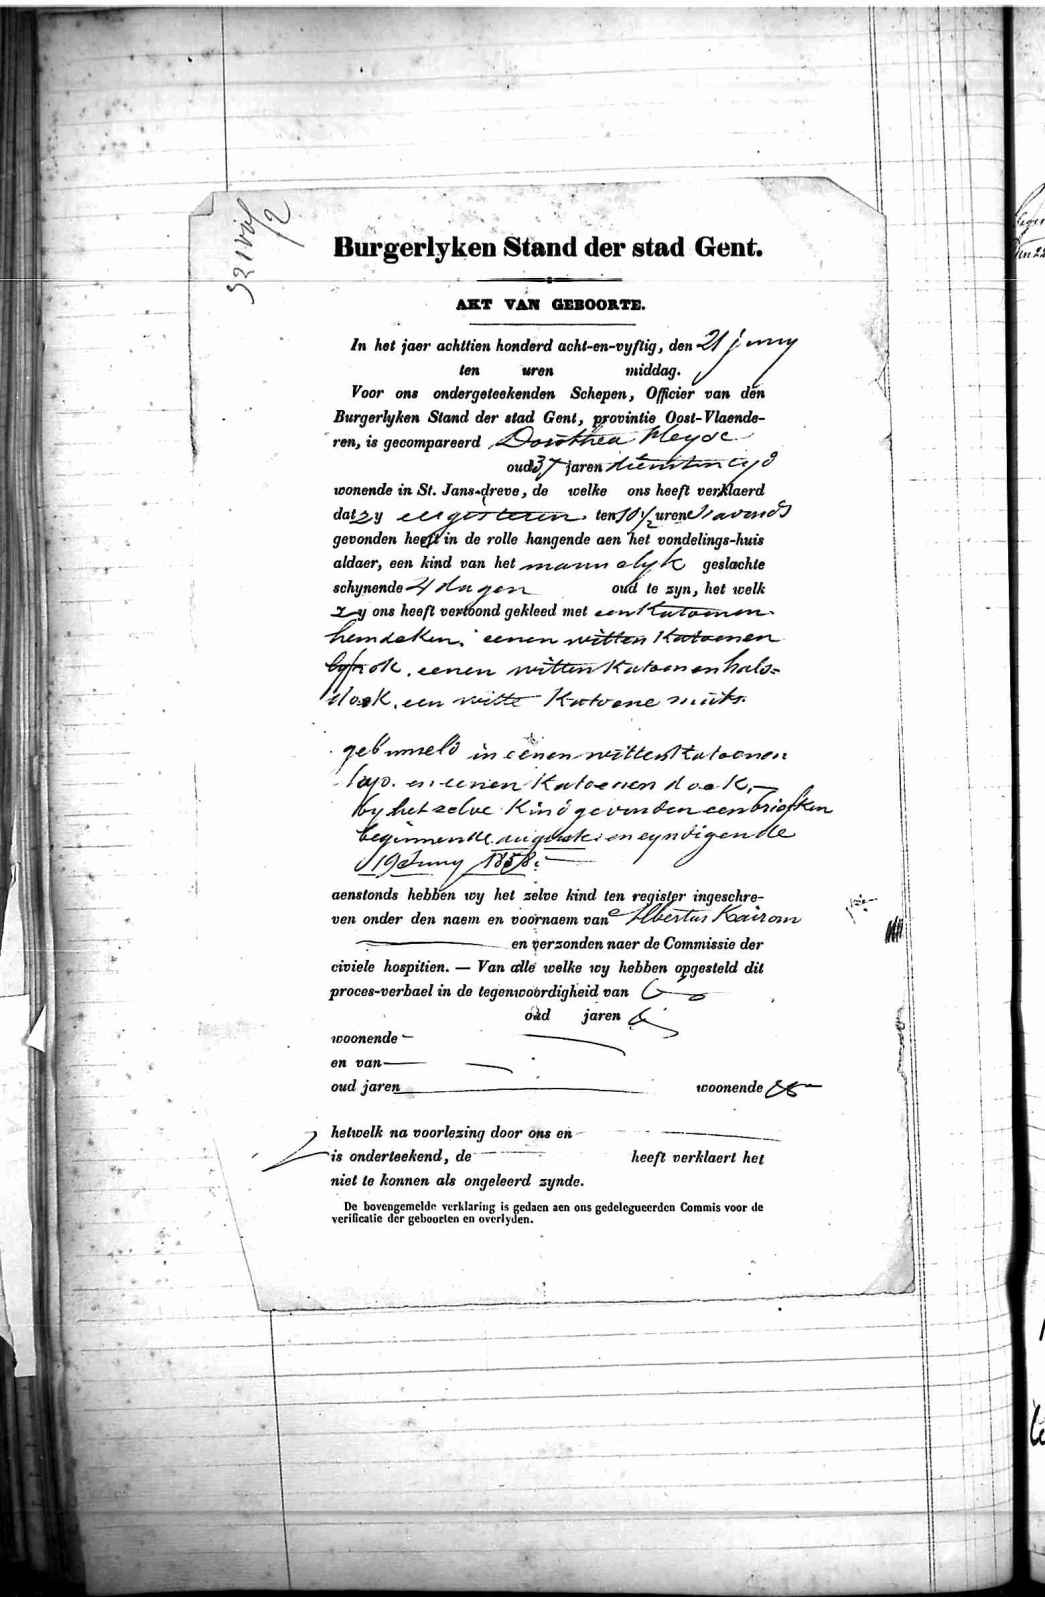 Burgerlyken Stand der stad Gent.
AKT VAN GEBOORTE.
In het jaer achttien honderd acht-en-vyftig, den 21 juny
ten uren middag.
Voor ons ondergeteekenden Schepen, Officier van den
Burgerlyken Stand der stad Gent, provintie Oost-Vlaende-
ren, is gecompareerd Dorothea Meyde
oud 37 jaren
wonende in St. Jans-dreve, de welke ons heeft verklaerd
dat zy eergisteren ten 10 1/2 uren s'avonds
gevonden heeft in de rolle hangende aen het vondelings-huis
aldaer, een kind van het mannelyk geslachte
schynende 4 dagen oud te zyn, het welk
zy ons heeft vertoond gekleed met een Katoenen
hemdeken, eenen witten Katoenen
lyfrok, eenen witten Katoenen hals=
doek, een witte Katoene muts
gebunseld in eenen witten Katoenen
lap. en eenen Katoenen doek,
by het zelve Kind gevonden een briefken
beginnende auguste en eyndigende
19 Juny 1858.
aenstonds hebben wy het zelve kind ten register ingeschre-
ven onder den naem en voornaem van Albertus Kairom
en verzonden naer de Commissie der
civiele hospitien. — Van alle welke wy hebben opgesteld dit
proces-verbael in de tegenwoordigheid van
oud jaren
woonende
en van
oud jaren woonende
hetwelk na voorlezing door ons en
is onderteekend, de heeft verklaert het
niet te konnen als ongeleerd zynde.
De bovengemelde verklaring is gedaen aen ons gedelegueerden Commis voor de
verificatie der geboorten en overlyden.